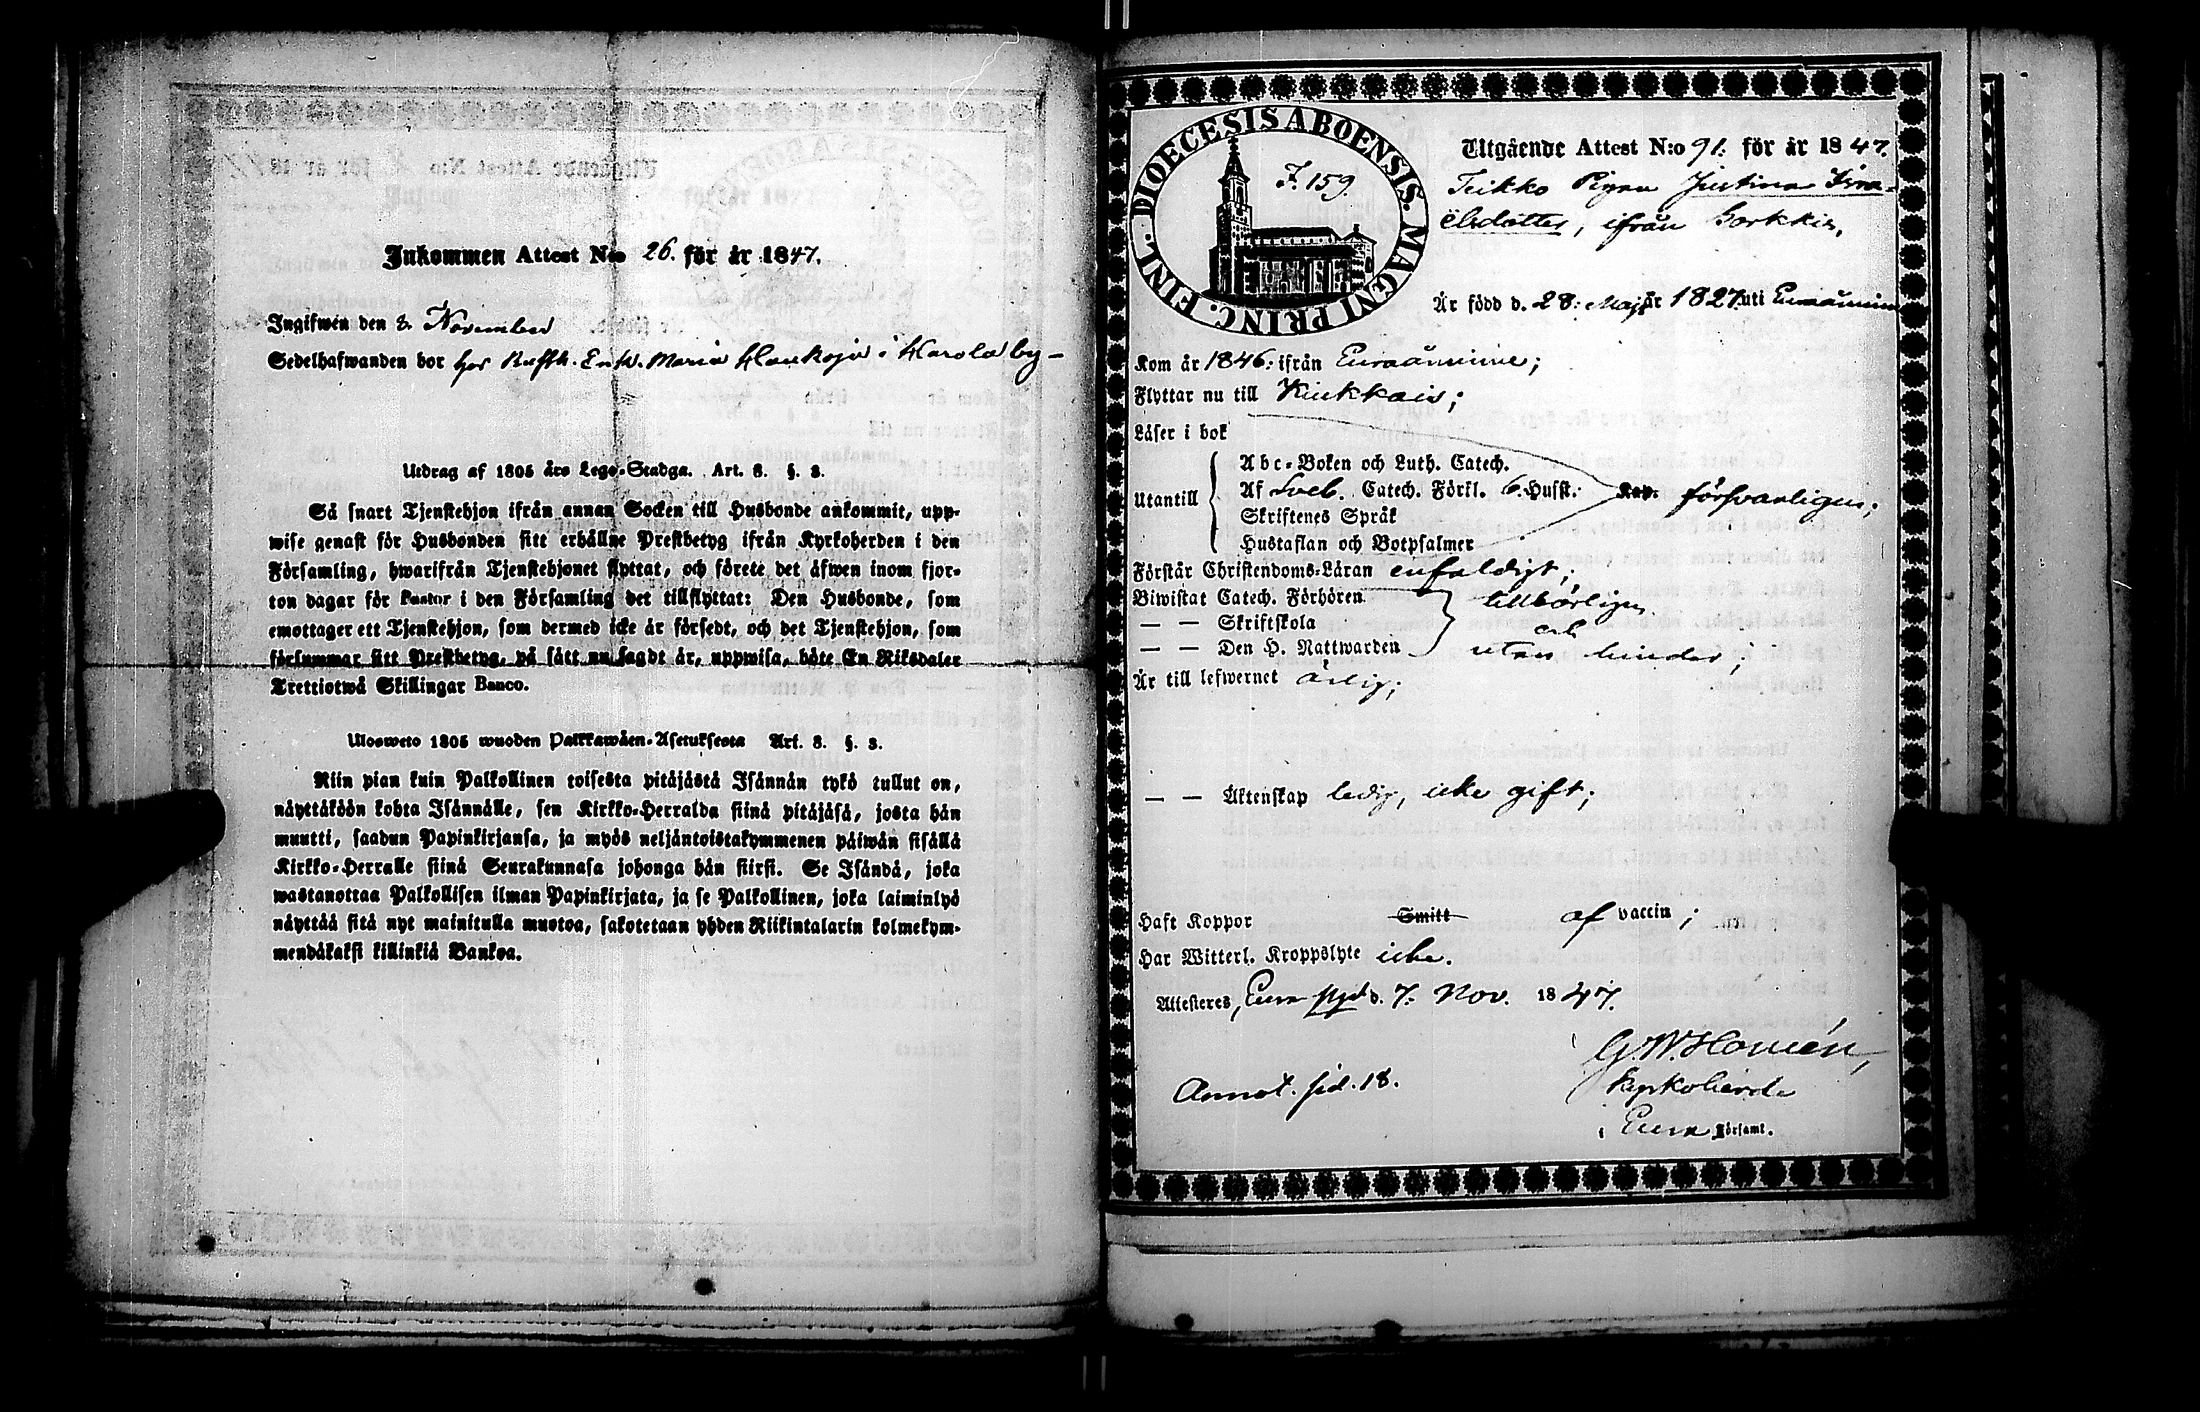 Inkommen Attest N:o 26. för år 1847.
Ingifwen den 8. November
Sedelhafwanden bor hos Rusth. Enk. Maria Haukoja i Harola by –
Utdrag af 1805 års Lego-Stadga. Art. 3. §. 3.
Så snart Tjenstehjon ifrån annan Socken till Husbonde ankommit, upp-
wise genast för Husbonden sitt erhållne Prestbetyg ifrån Kyrkoherden i den
Församling, hwarifrån Tjenstehjonet flyttat, och förete det äfwen inom fjor-
ton dagar för Pastor i den Församling det tillflyttat: Den Husbonde, som
emottager ett Tjenstehjon, som dermed icke är försedt, och det Tjenstehjon, som
försummar sitt Prestbetyg, på sätt nu sagdt är, uppwisa, böte En Riksdaler
Trettiotwå Skillingar Banco.
Ulosweto 1805 wuoden Palkkawäen-Asetuksesta Art. 3. §. 3.
Niin pian kuin Palkollinen toisesta pitäjästä Isännän tykö tullut on,
näyttäköön kohta Isännälle, sen Kirkko-Herralda siinä pitäjäsä, josta hän
muutti, saadun Papinkirjansa, ja myös neljäntoistakymmenen päiwän sisällä
Kirkko-Herralle siinä Seurakunnasa johonga hän siirsi. Se Isändä, joka
wastanottaa Palkollisen ilman Papinkirjata, ja se Palkollinen, joka laiminlyö
näyttää sitä nyt mainitulla muotoa, sakotetaan yhden Riikintalarin kolmekym-
mendäkaksi killinkiä Bankoa.
FINL. DIOECESIS ABOENSIS. MAGNI PRINC.
F. 159.
Utgående Attest N:o 91. för år 1847.
Teikko Pigan Justina Isra-
ëlsdotter, ifrån Sorkkis,
Är född d. 28: Maji år 1827. uti Euraåminne
Kom år 1846: ifrån Euraåminne;
Flyttar nu till Kiukkais;
Läser i bok
Utantill
Abc-Boken och Luth. Catech.
Af Sveb. Catech. Förkl. 6. Hufst. Kap. försvarligen;
Skriftenes Språk
Hustaflan och Botpsalmer
Förstår Christendoms-Läran enfaldigt;
Biwistat Catech. Förhören tillbörligen
— — Skriftskola och
— — Den H. Nattwarden utan hinder;
Är till lefwernet ärlig;
— — Äktenskap ledig, icke gift;
Haft Koppor Smitt af vaccin;
Har Witterl. Kroppslyte icke.
Attesteres, Eura pgd d. 7. Nov. 1847.
G. W. Homén,
Kyrkoherde
i Eura Församl.
Annot. sid. 18.